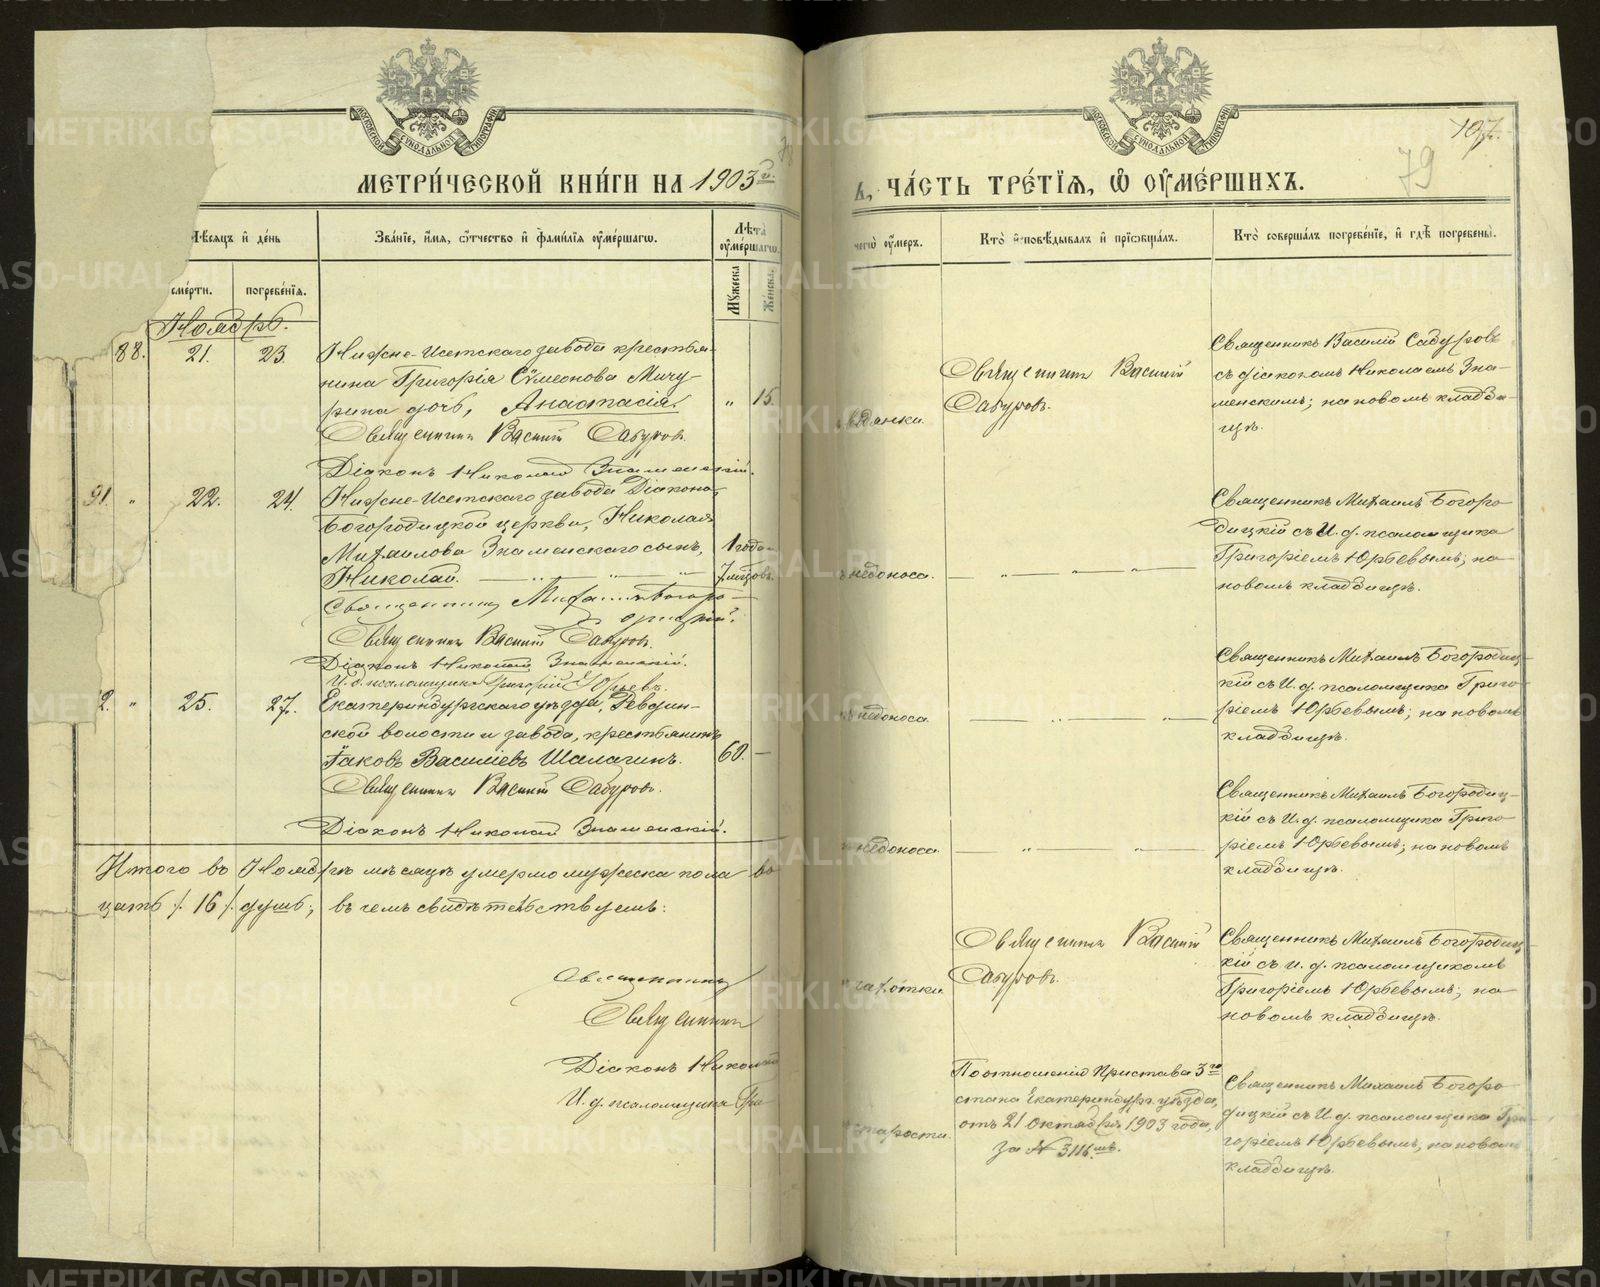 МЕТРИ́ЧЕСКОЙ КНИ́ГИ НА 1903 г.
Мѣсяцъ и де́нь
Зва́нїе, и́мя, о́тчество и фами́лїя оуме́ршагѡ.
Лѣта̀ оуме́ршагѡ.
сме́рти.
погребе́нїя.
Мꙋжеска
Же́нска.
Ноябрь.
88.
21.
23.
Нижне-Исетскаго завода крестья-
нина Григорія Сѵмеонова Мичу-
рина дочь, Анастасія.
„ 15.
Священникъ Василій Сабуровъ.
Діаконъ Николай Знаменскій.
31. „ 22. 24.
Нижне-Исетскаго завода Діакона
Богородицкой церкви, Николая
Михаилова Знаменскаго сынъ,
Николай.
1 года
7 мѣсяцовъ.
Священникъ Михаилъ Богоро-
дицкій.
Священникъ Василій Сабуровъ.
Діаконъ Николай Знаменскій.
И. д. псаломщика Григорій Юрьевъ.
2. „ 25. 27.
Екатеринбургскаго уѣзда, Ревдин-
ской волости и завода, крестьянинъ
Іаковъ Василіевъ Шалагинъ.
60. —
Священникъ Василій Сабуровъ.
Діаконъ Николай Знаменскій.
Итого въ Ноябрѣ мѣсяцѣ умерло мужеска пола во
цать /. 16 /. душъ; въ чемъ свидѣтельствуемъ:
Священникъ
Священникъ
Діаконъ Николай
И. д. псаломщика Гри
107.
79
А, ЧА́СТЬ ТРЕ́ТЇЯ, Ѡ ОУМЕ́РШИХЪ.
чегѡ̀ оу́меръ.
Кто̀ и҆сповѣ́дывалъ и прїѡбща́лъ.
Кто̀ соверша́лъ погребе́нїе, и гдѣ̀ погребены̀.
Священникъ Василій Сабуровъ
Священникъ Василій Сабуровъ.
съ діакономъ Николаемъ Зна-
менскимъ; на новомъ кладби-
щѣ.
недоноса.
Священникъ Михаилъ Богоро-
дицкій съ И. д. псаломщика
Григоріемъ Юрьевымъ; на
новомъ кладбищѣ.
недоноса.
Священникъ Михаилъ Богородиц-
кій съ И. д. псаломщика Григо-
ріемъ Юрьевымъ; на новомъ
кладбищѣ.
недоноса.
Священникъ Михаилъ Богородиц-
кій съ И. д. псаломщика Григо-
ріемъ Юрьевымъ; на новомъ
кладбищѣ.
чахотки.
Священникъ Василій
Сабуровъ.
Священникъ Михаилъ Богородиц-
кій съ и. д. псаломщикомъ
Григоріемъ Юрьевымъ; на
новомъ кладбищѣ.
старости.
По отношенію Пристава 3го
стана Екатеринбург. уѣзда,
отъ 21 октября 1903 года,
за № 3116.мъ.
Священникъ Михаилъ Богоро-
дицкій съ И. д. псаломщика Гри-
горіемъ Юрьевымъ, на новомъ
кладбищѣ.
METRIKI.GASO-URAL.RU